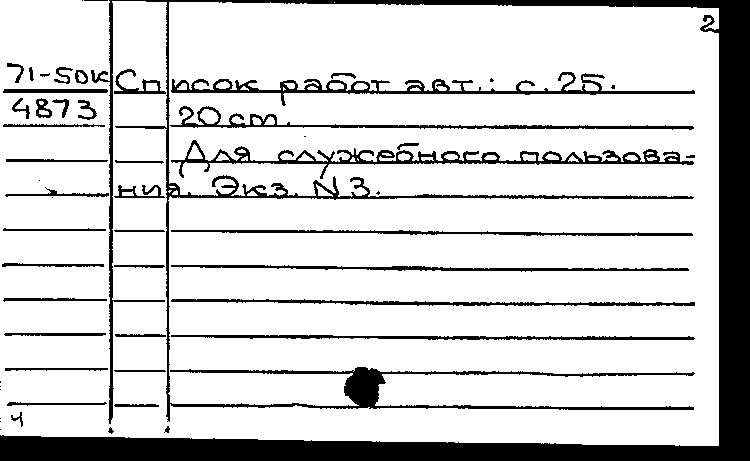 2
71-50к Список работ авт.: с. 25.
4873 20 см.
Для служебного пользова-
ния. Экз. N 3.
ч